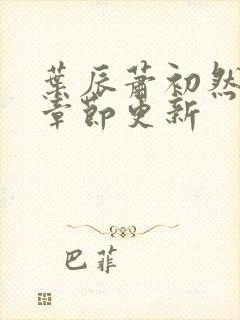 葉辰蕭初然
章節更新
巴菲